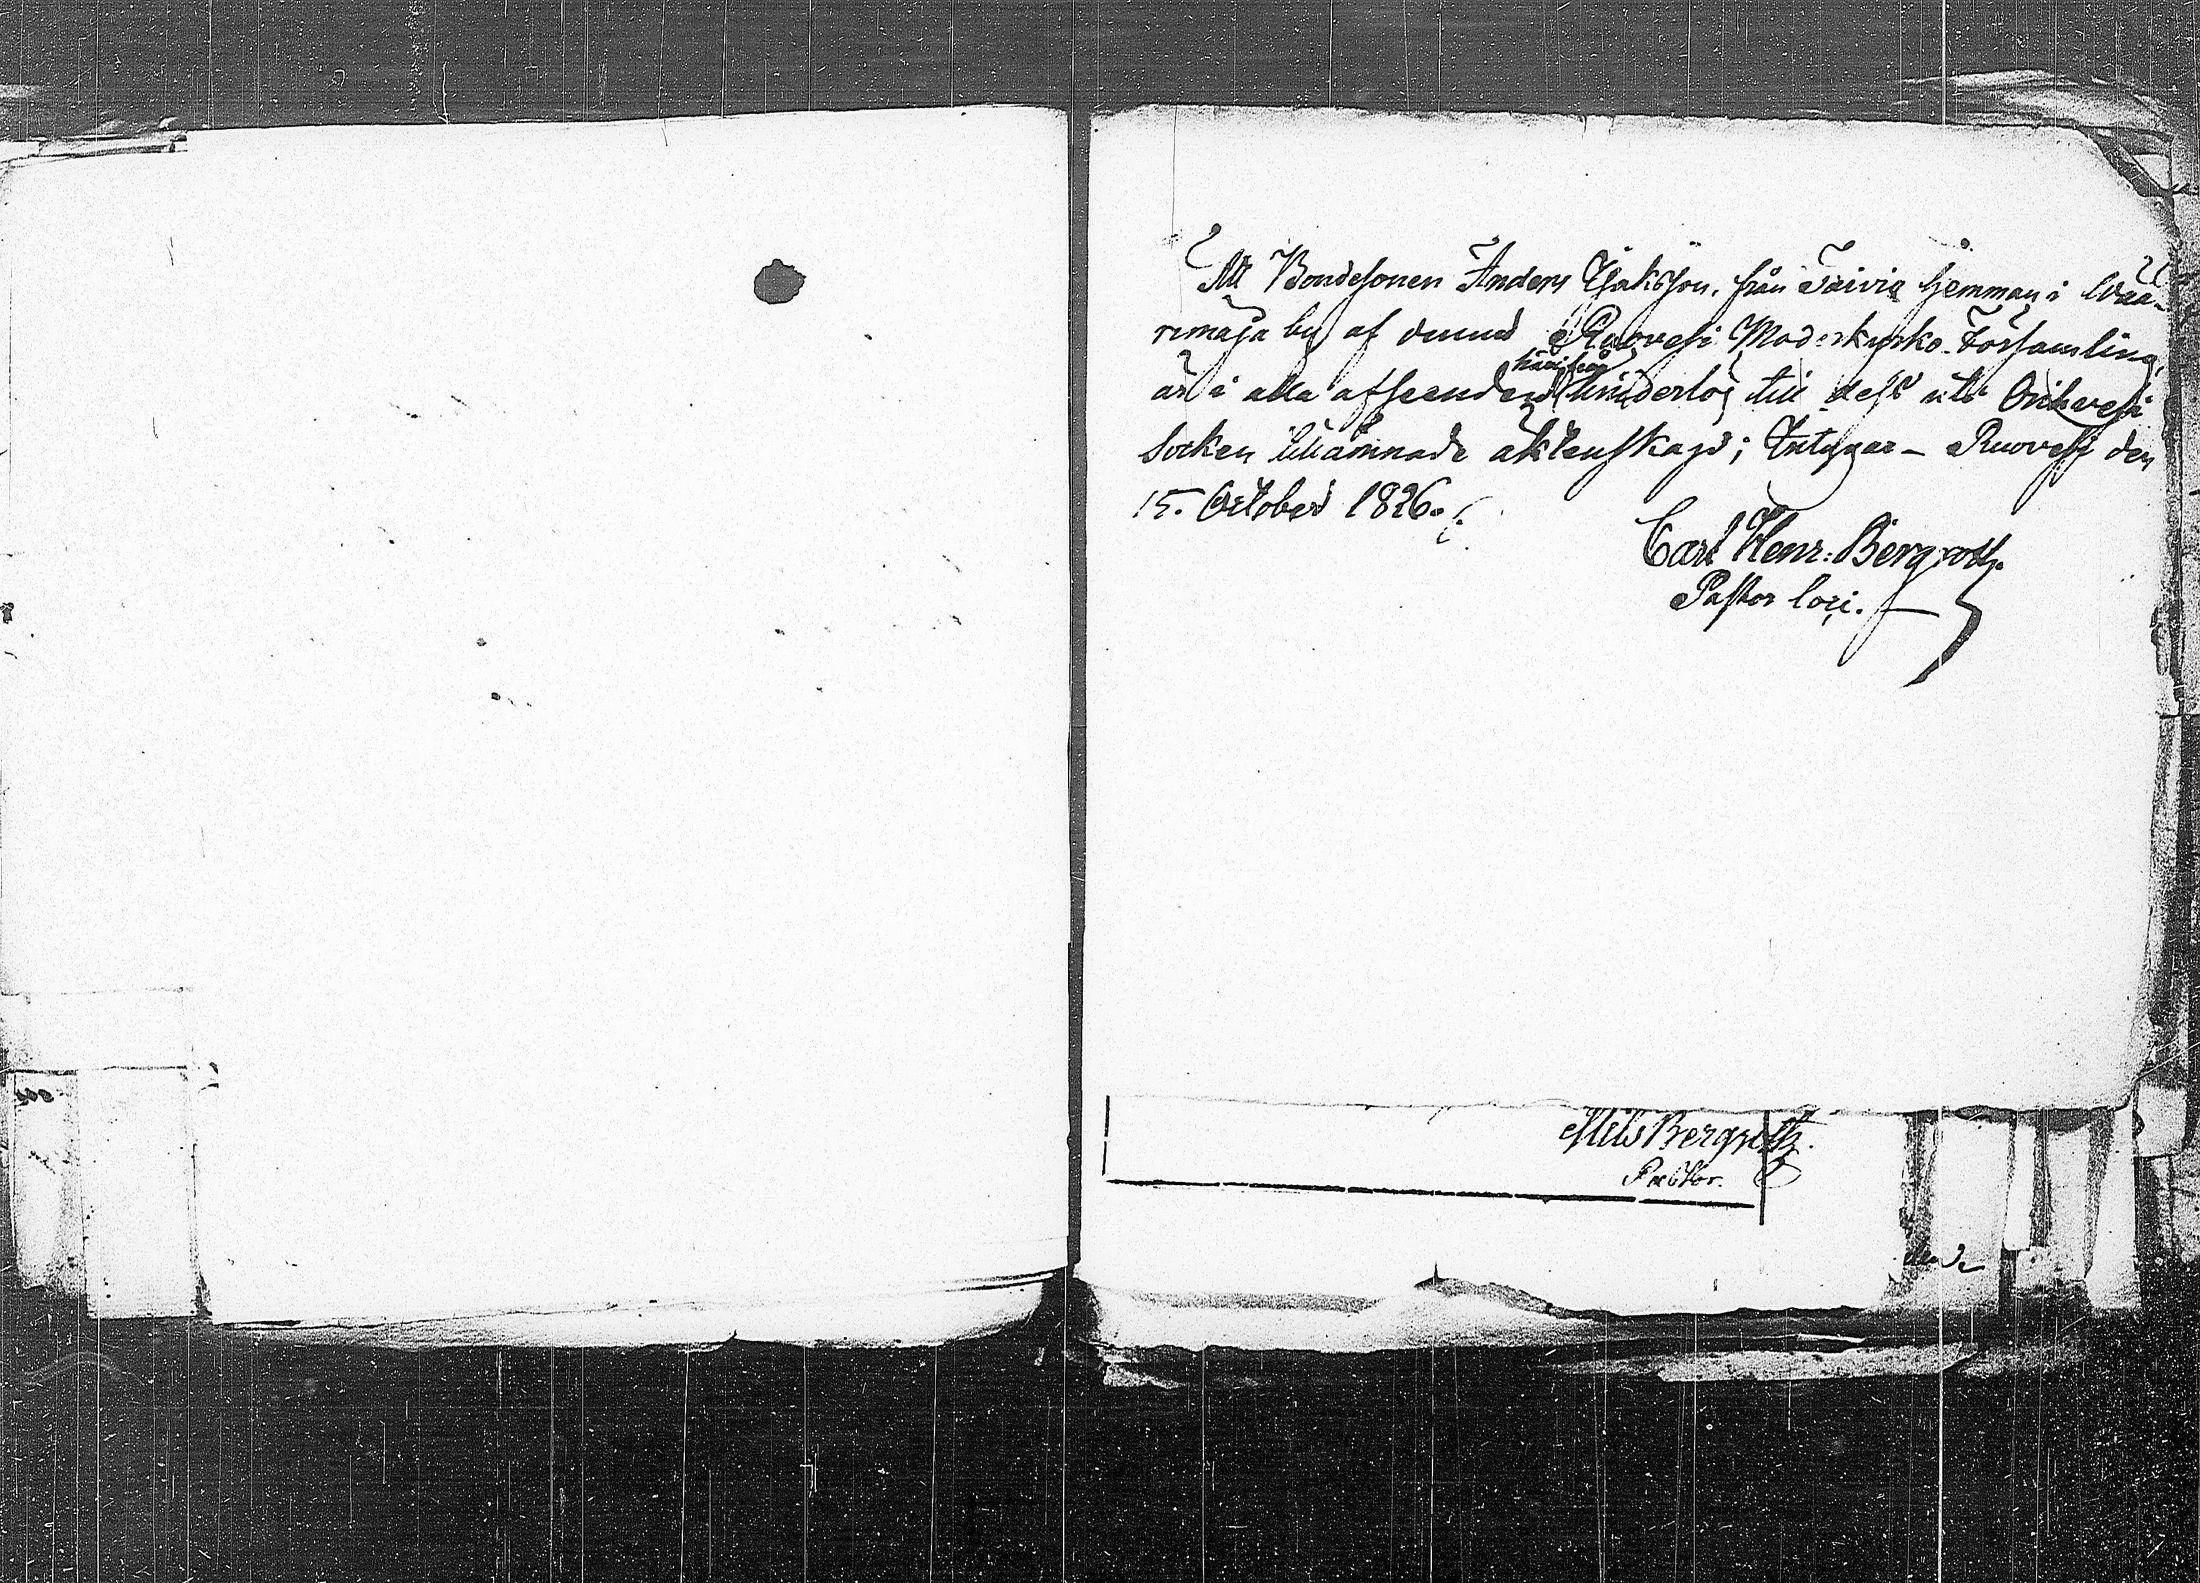 Att Bondesonen Anders Isaksson, från Taivia hemman i Waa-
rimaja by af denna Ruovesi Moderkyrko-Församling,
är i alla afseenden härifrån hinderlös till dess uti Orihvesi
Socken tillämnade äktenskap; Intygar - Ruovesi den
15. October 1826.
Carl Henr: Bergroth.
Pastor loci.
Nils Bergroth.
Pastor.